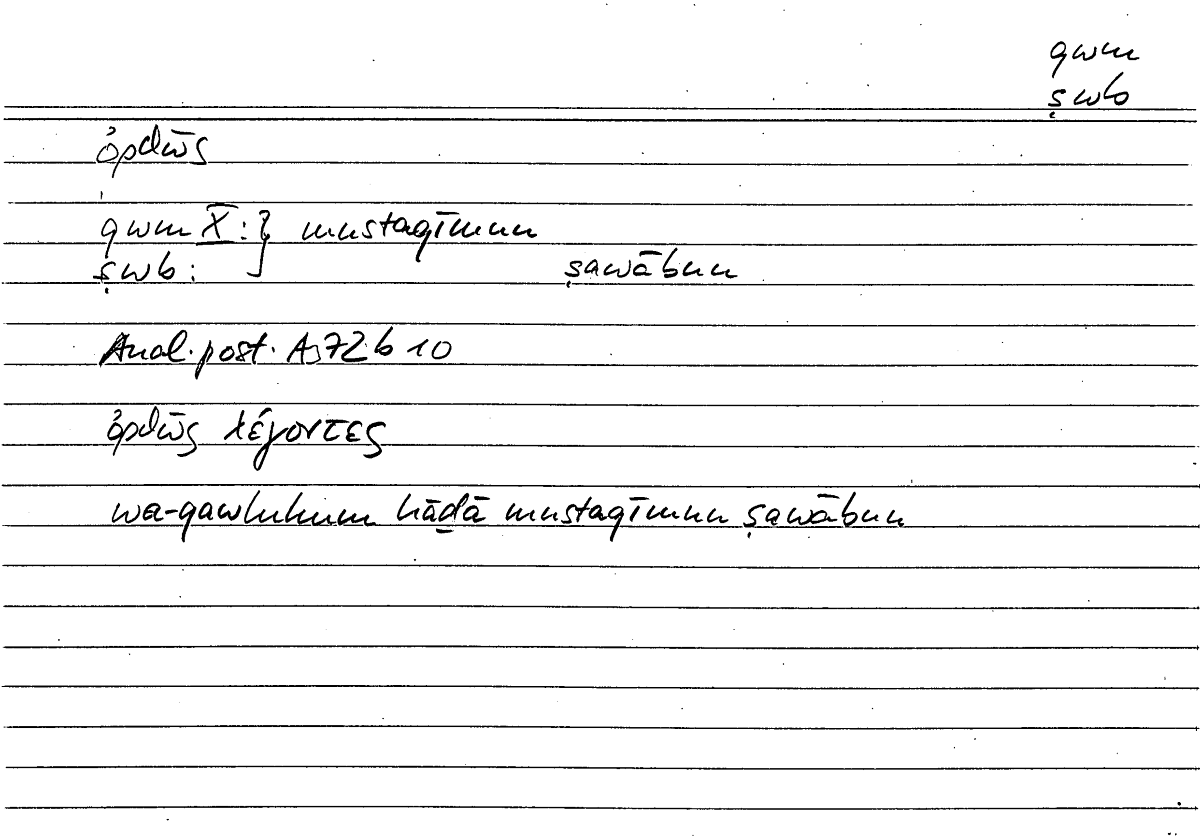 qwm
ṣwb
ὀρθῶς
qwm X : } mustaqīmun
ṣwb : ṣawābun
Anal. post. A3 72 b 10
ὀρθῶς λέγοντες
wa-qawluhum hāḏā mustaqīmun ṣawābun